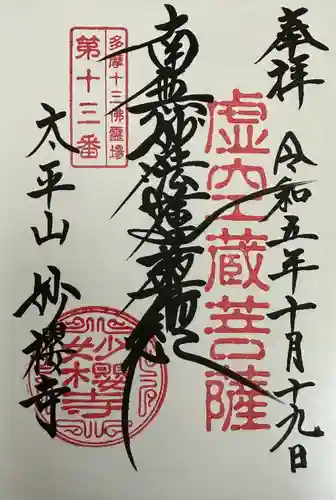 奉祥
令和五年十月十九日
虚空蔵菩薩
南無妙法蓮華経
多摩十三佛霊場
第十三番
太平山 妙櫻寺
妙櫻寺